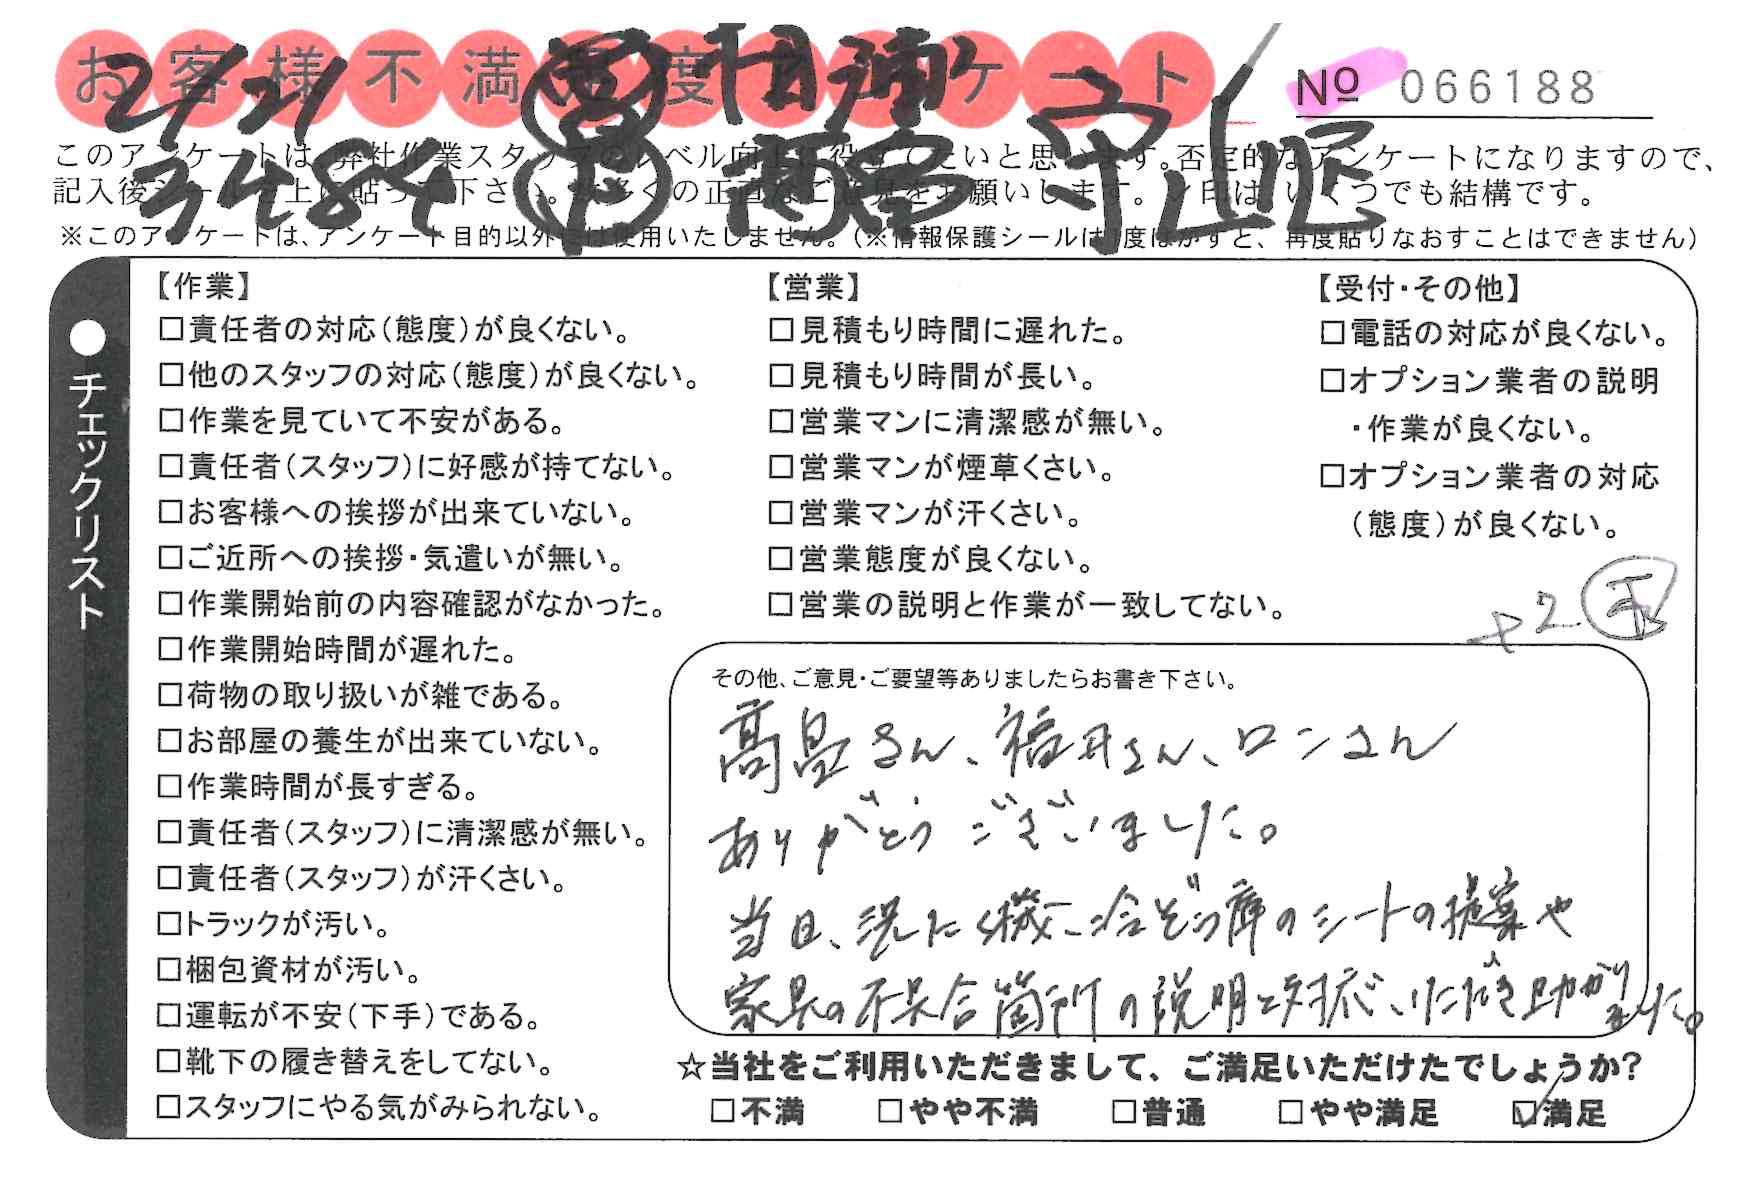 お客様不満足度アンケート
№ 066188
2/21
守山区
このアンケートは、弊社作業スタッフのレベル向上に役立てたいと思います。否定的なアンケートになりますので、
記入後シールを上に貼って下さい。数多くの正直なご意見をお願いします。レ印は、いくつでも結構です。
※このアンケートは、アンケート目的以外には使用いたしません。(※情報保護シールは1度はがすと、再度貼りなおすことはできません)
●チェックリスト
【作業】
□責任者の対応(態度)が良くない。
□他のスタッフの対応(態度)が良くない。
□作業を見ていて不安がある。
□責任者(スタッフ)に好感が持てない。
□お客様への挨拶が出来ていない。
□ご近所への挨拶・気遣いが無い。
□作業開始前の内容確認がなかった。
□作業開始時間が遅れた。
□荷物の取り扱いが雑である。
□お部屋の養生が出来ていない。
□作業時間が長すぎる。
□責任者(スタッフ)に清潔感が無い。
□責任者(スタッフ)が汗くさい。
□トラックが汚い。
□梱包資材が汚い。
□運転が不安(下手)である。
□靴下の履き替えをしてない。
□スタッフにやる気がみられない。
【営業】
□見積もり時間に遅れた。
□見積もり時間が長い。
□営業マンに清潔感が無い。
□営業マンが煙草くさい。
□営業マンが汗くさい。
□営業態度が良くない。
□営業の説明と作業が一致してない。
【受付・その他】
□電話の対応が良くない。
□オプション業者の説明
・作業が良くない。
□オプション業者の対応
(態度)が良くない。
その他、ご意見・ご要望等ありましたらお書き下さい。
高畠さん、福井さん、ロンさん
ありがとうございました。
当日、洗たく機、冷ぞう庫のシートの提案や
家具の不具合箇所の説明と対応、いただき助かりました。
☆当社をご利用いただきまして、ご満足いただけたでしょうか?
□不満 □やや不満 □普通 □やや満足 ☑満足